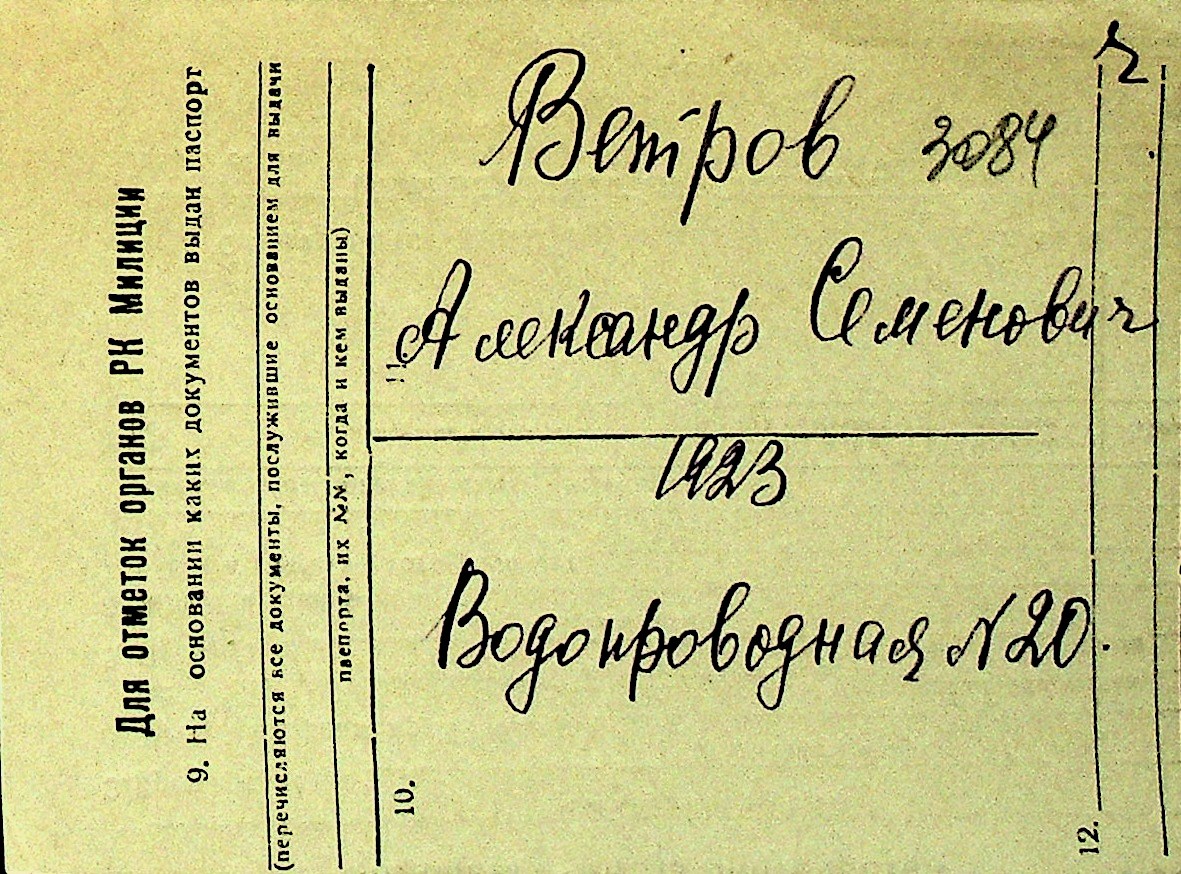 Для отметок органов РК Милиции
9. На основании каких документов выдан паспорт
(перечисляются все документы, послужившие основанием для выдачи
паспорта, их №№, когда и кем выданы)
10.
11
12.
Ветров 3084
Александр Семенович
1923
Водопроводная N20.